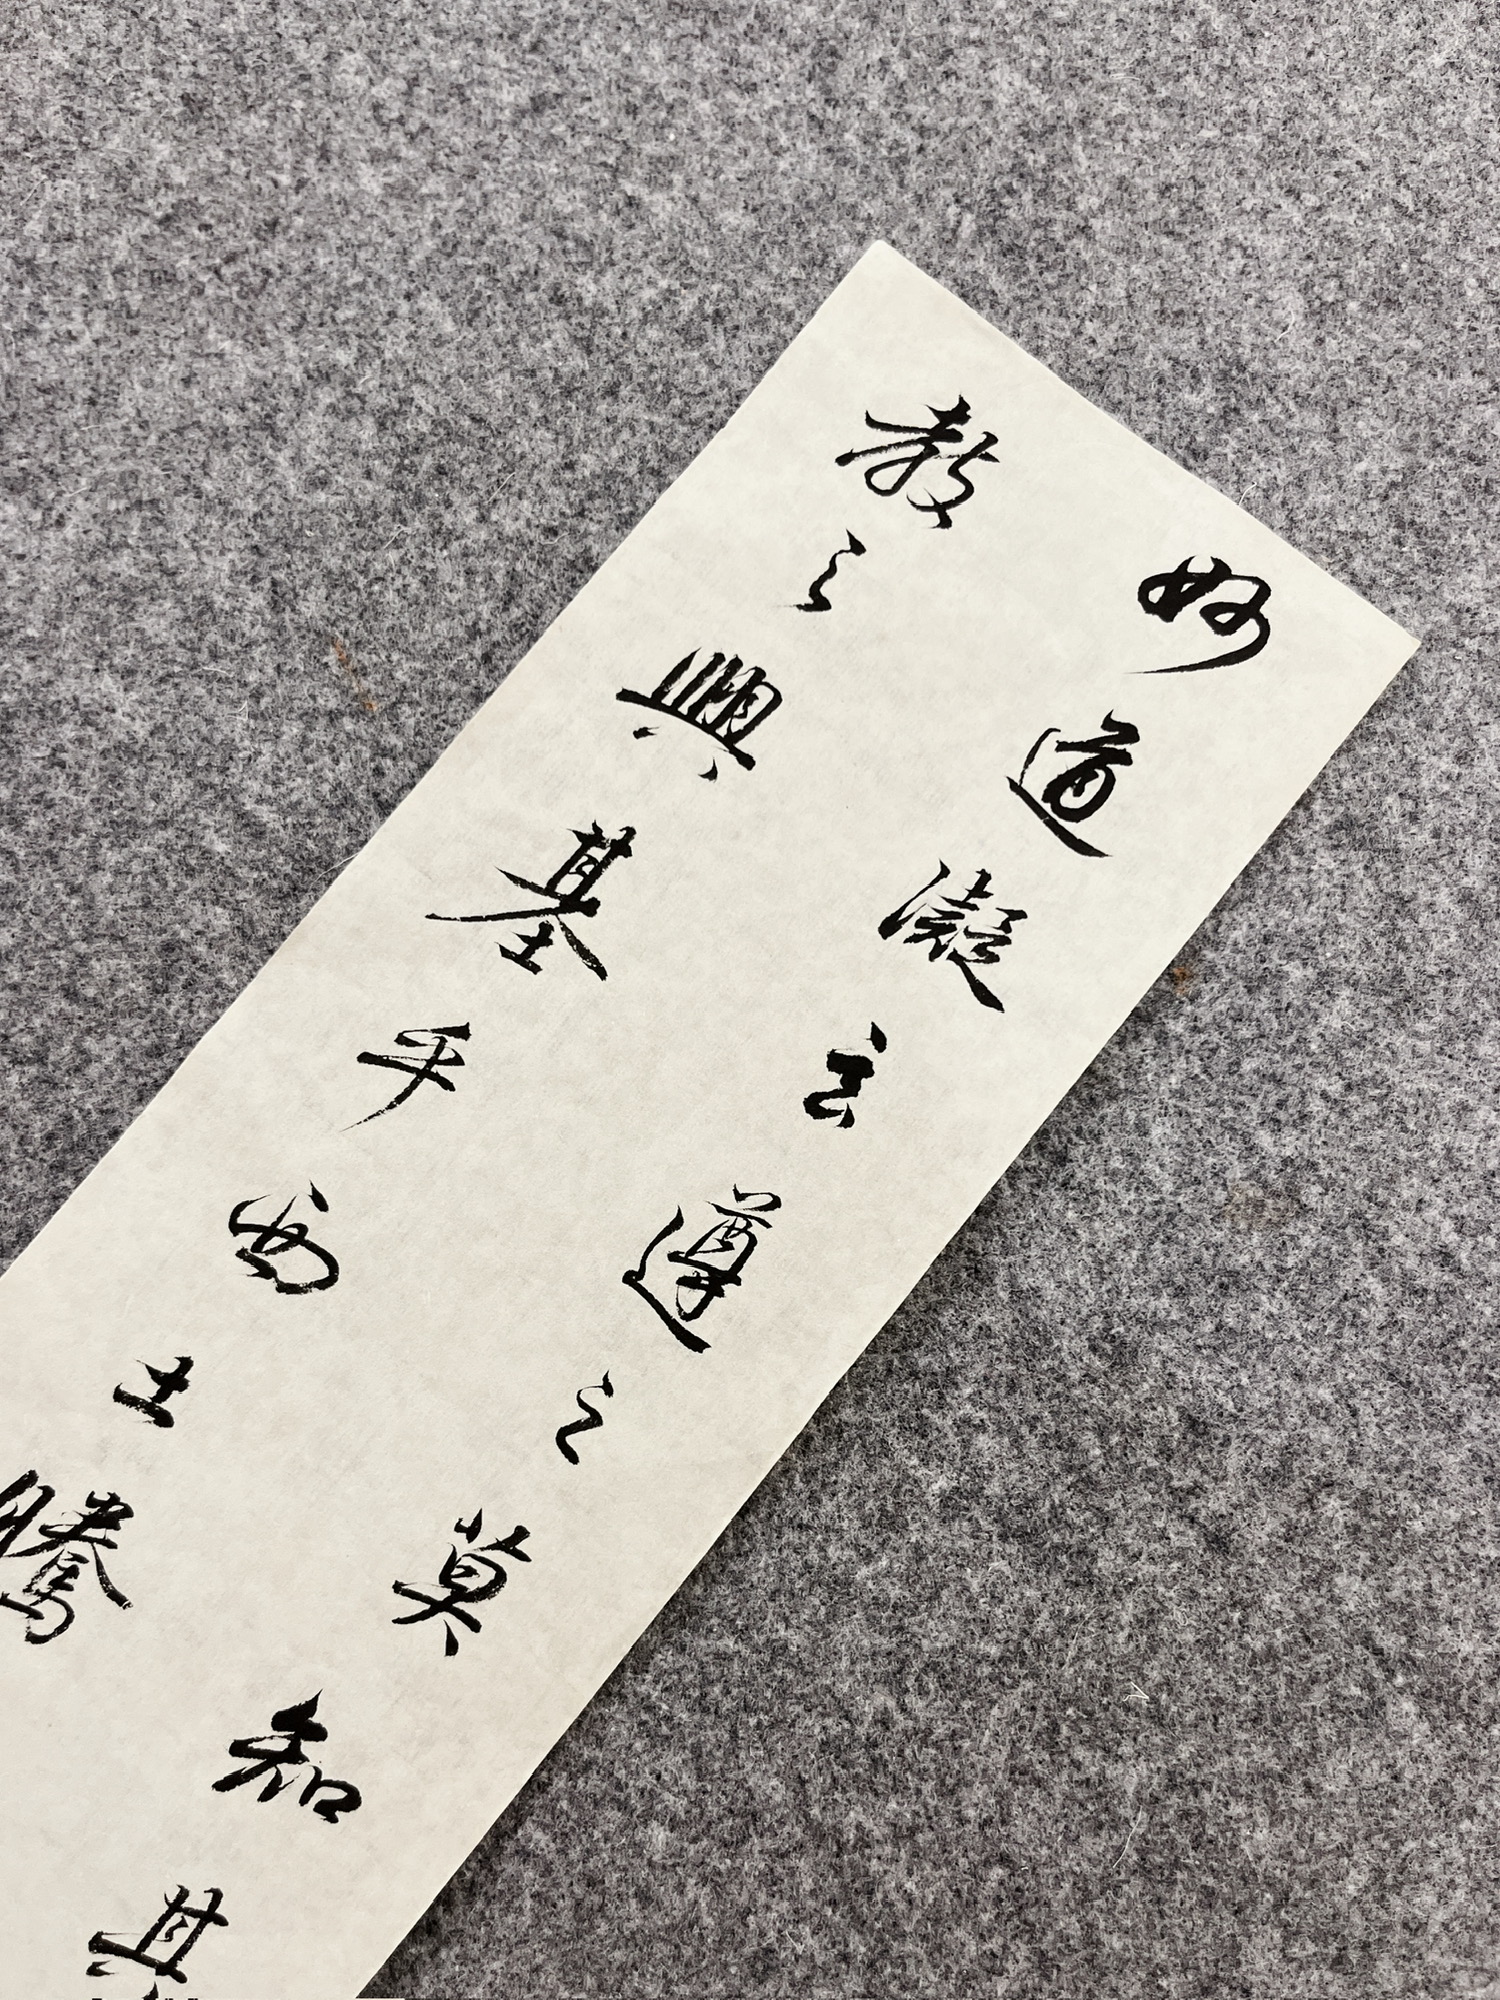 妙道凝玄遵之莫知其
教之興基乎西土騰